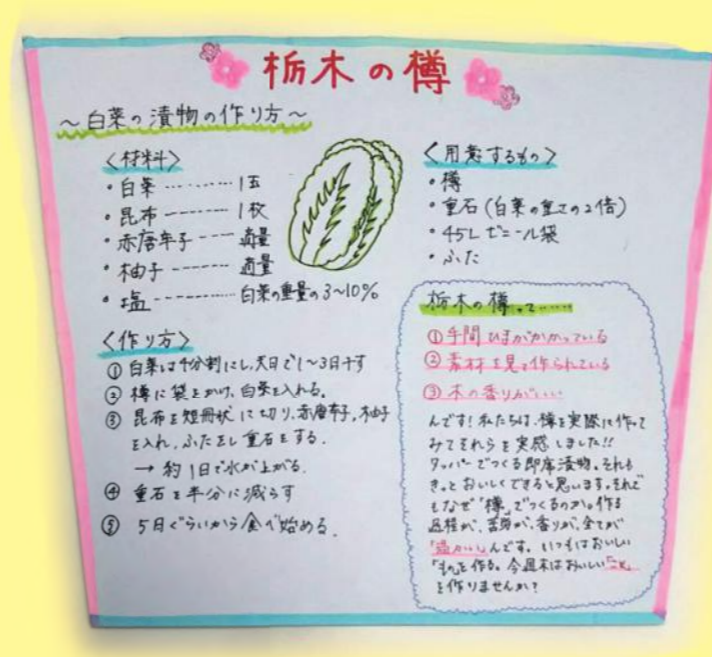 栃木の樽
～白菜の漬物の作り方～
〈材料〉
・白菜………1玉
・昆布-------1枚
・赤唐辛子----適量
・柚子-------適量
・塩--------白菜の重量の3~10%
〈作り方〉
① 白菜は4分割にし、天日で1～3日干す
② 樽に袋をかけ、白菜を入れる。
③ 昆布を短冊状に切り、赤唐辛子、柚子
を入れ、ふたをし重石をする。
→ 約1日で水が上がる。
④ 重石を半分に減らす
⑤ 5日ぐらいから食べ始める。
〈用意するもの〉
・樽
・重石(白菜の重さの2倍)
・45Lビニール袋
・ふた
栃木の樽って……
①手間ひまがかかっている
②素材を見て作られている
③木の香りがいい
んです!私たちは、樽を実際に作って
みてそれらを実感しました!!
タッパーでつくる即席漬物。それも
きっとおいしくできると思います。それで
もなぜ「樽」でつくるのか。作る
過程が、苦労が、香りが、全てが
「温かい」んです。いつもはおいしい
「もの」を作る。今週末はおいしい「こと」
を作りませんか?